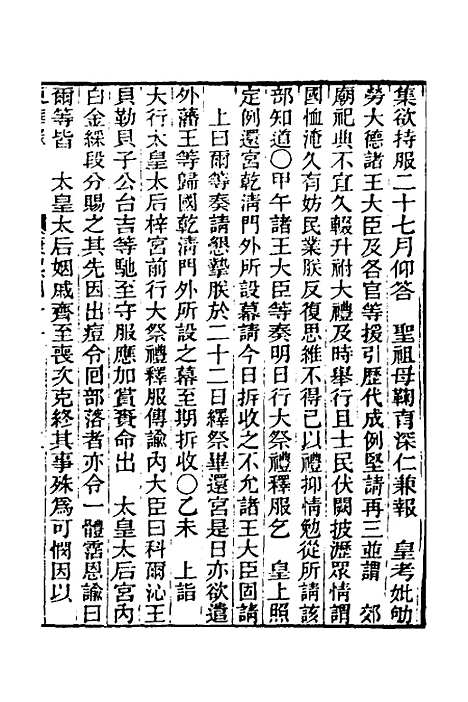 集欲持服二十七月仰答　聖祖母鞠育深仁兼報　皇考妣劬
勞大德諸王大臣及各官等援引歷代成例堅請再三並謂　郊
廟祀典不宜久輟升祔大禮及時舉行且士民伏闕披瀝眾情謂
國恤淹久有妨民業朕反復思維不得已以禮抑情勉從所請該
部知道○甲午諸王大臣等奏明日行大祭禮釋服乞　皇上照
定例還宮乾淸門外所設幕請今日拆收之不允諸王大臣固請
上曰爾等奏請懇摯朕於二十二日繹祭畢還宮是日亦欲遣
外藩王等歸國乾淸門外所設之幕至期拆收○乙未　上詣
大行太皇太后梓宮前行大祭禮釋服傳諭內大臣曰科爾沁王
貝勒貝子公台吉等馳至守服應加賞賚命出　太皇太后宮內
白金綵段分賜之其先因出痘令回部落者亦令一體霑恩諭曰
爾等皆　太皇太后姻戚齊至喪次克終其事殊爲可憫因以